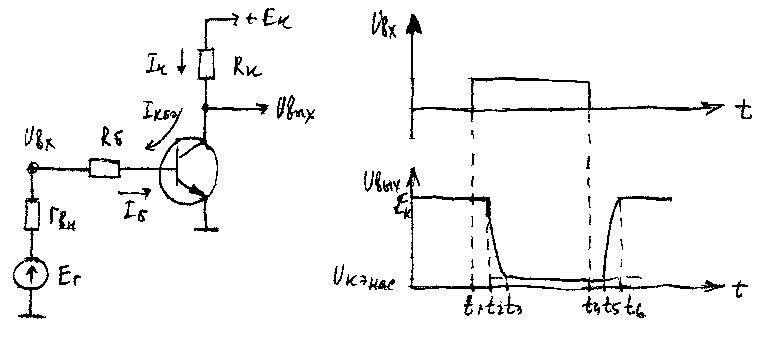 + Eк
Iк
Rк
Iкбэ
Uвых
Uвх
Rб
Iб
rвн
Eг
Uвх
t
Uвых
Eк
Uкэнас
t
t1 t2 t3
t4 t5 t6